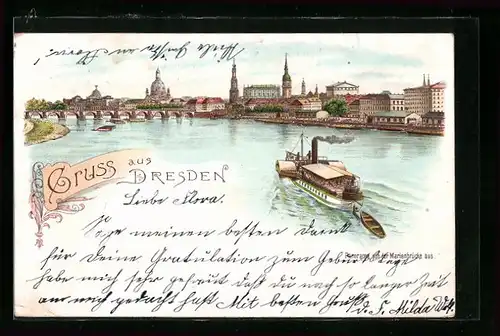 Viele Grüße an Mama!
Gruss aus
Dresden
Panorama von der Marienbrücke aus.
Liebe Flora.
Sage meinen besten Dank
für Deine Gratulation zum Geburtstage
habe mich sehr gefreut daß du nach so langer Zeit
an mich gedacht hast Mit besten Gruß
d. F. Milda